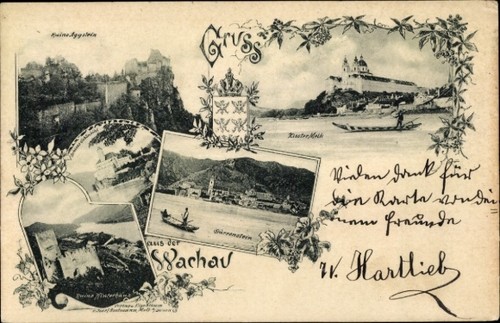 Ruine Aggstein
Gruss
Kloster Melk
Dürrenstein
aus der
Wachau
Ruine Hinterhaus
Vielen dank für
die Karte von dei
nem Freunde
W. Hartlieb